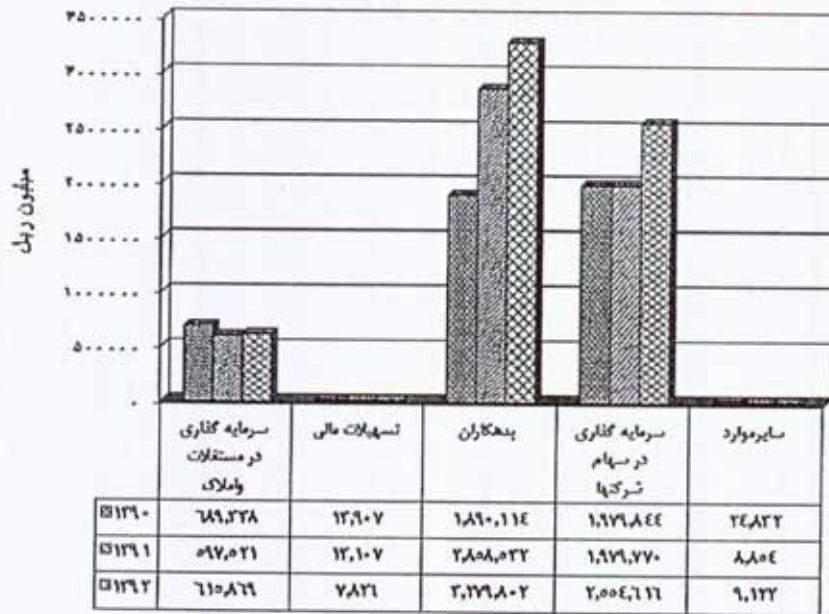 ۳۵۰۰۰۰۰
۳۰۰۰۰۰۰
۲۵۰۰۰۰۰
۲۰۰۰۰۰۰
۱۵۰۰۰۰۰
۱۰۰۰۰۰۰
۵۰۰۰۰۰
۰
میلیون ریال
سرمایه گذاری در مستغلات واملاک
تسهیلات مالی
بدهکاران
سرمایه گذاری در سهام شرکتها
سایرموارد
۱۳۹۰ ۶۸۹,۳۳۸ ۱۳,۹۰۷ ۱,۸۹۰,۱۱٤ ۱,۹۷۹,۸٤٤ ۲٤,۸۳۲
۱۳۹۱ ۵۹۷,۵۲۱ ۱۳,۱۰۷ ۲,۸۵۸,۵۳۲ ۱,۹۷۹,۷۷۰ ۸,۸۵٤
۱۳۹۲ ۶۱۵,۸۶۹ ۷,۸۲۶ ۳,۲۷۹,۸۰۲ ۲,۵۵٤,۶۱۶ ۹,۱۲۲